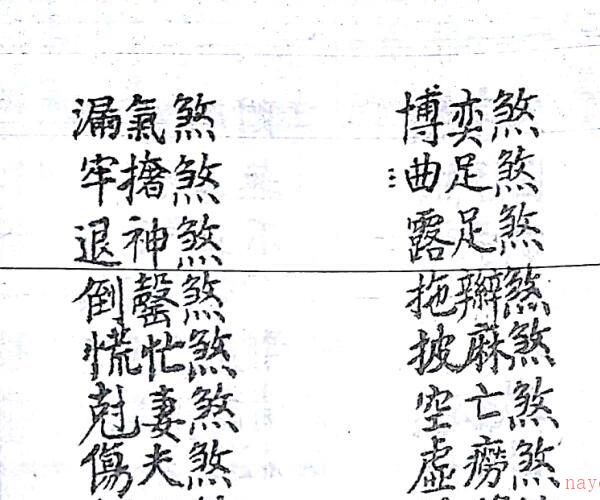 博奕煞
曲足煞
露足煞
拖辮煞
披麻煞
空亡煞
虛癆煞
漏氣煞
牢撦煞
退神煞
倒罄煞
慌忙煞
尅妻煞
傷夫煞